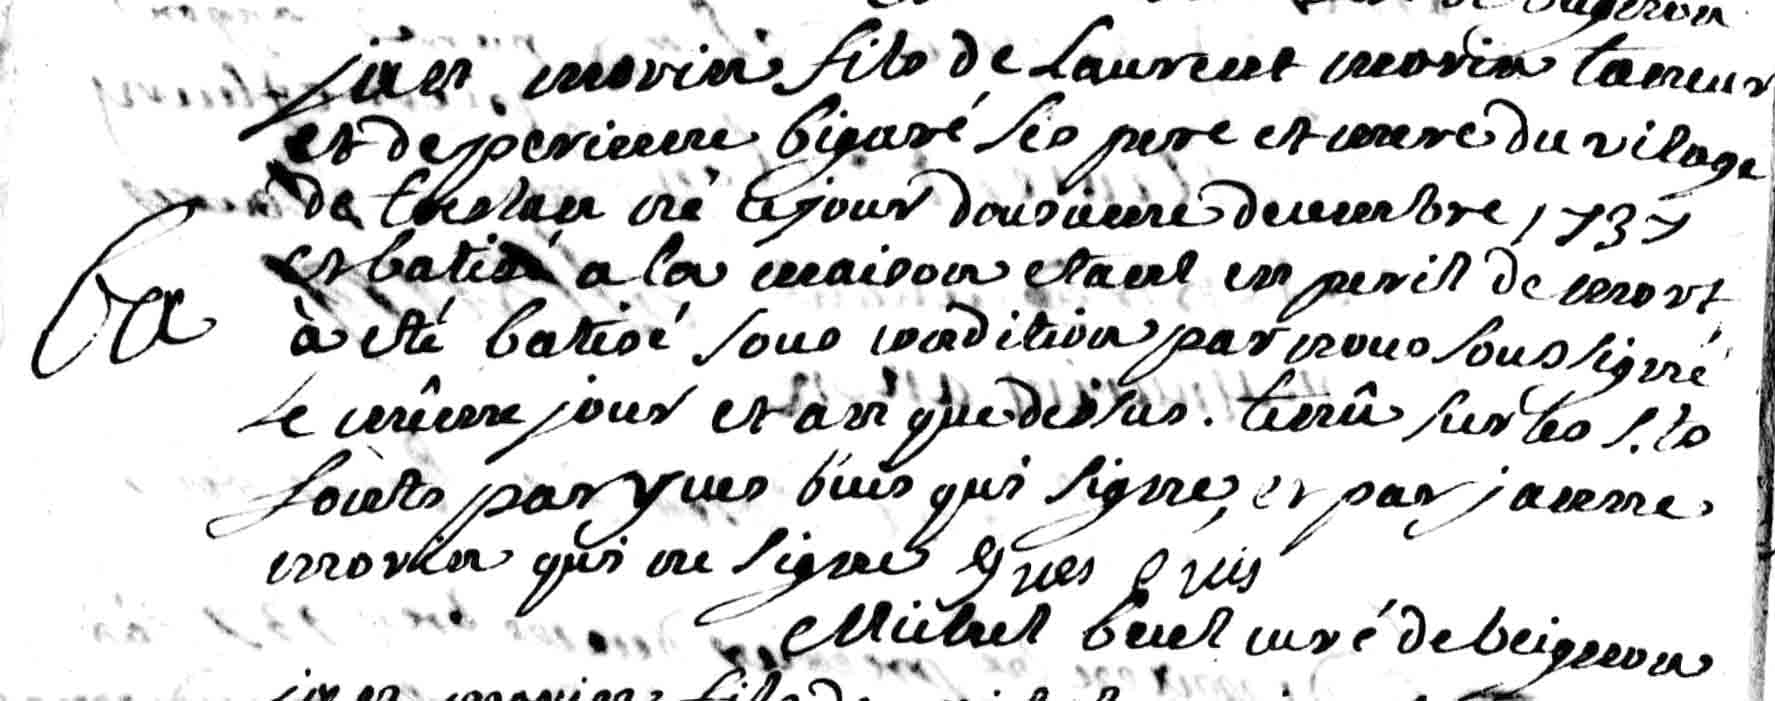 jean morin fils de Laurent morin taneur
et de perienne bigaré ses pere et mere du vilage
de né le jour dousieme decembre 1737
et batisé a la maison etant en peril de mort
à eté batisé sous condition par nous soussigné
le même jour et an que dessus. tenû sur les s.ts
fonts par yves qui signe, et par janne
morin qui ne signe yves
Michel curé de beignon